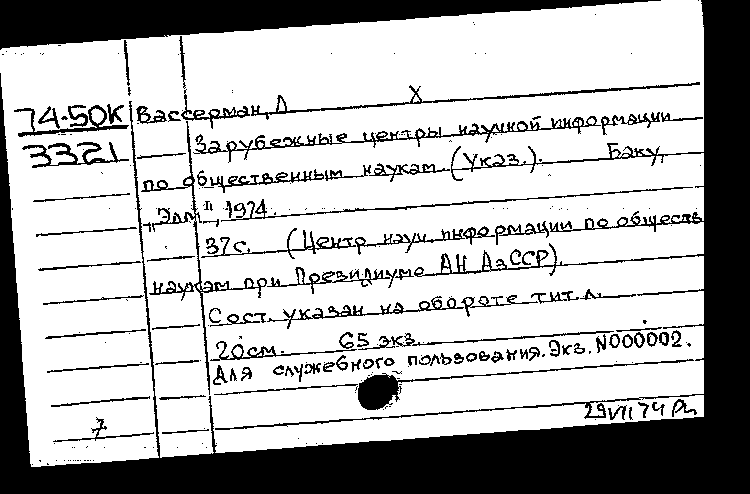 74-50К Вассерман, Л X
3321 Зарубежные центры научной информации
по общественным наукам. (Указ.). Баку,
"Элм", 1974.
37с. (Центр науч. информации по обществ
наукам при Президиуме АН АзССР).
Сост. указан на обороте тит. л.
20см. 65 экз.
Для служебного пользования. Экз. N000002.
7 29VII74